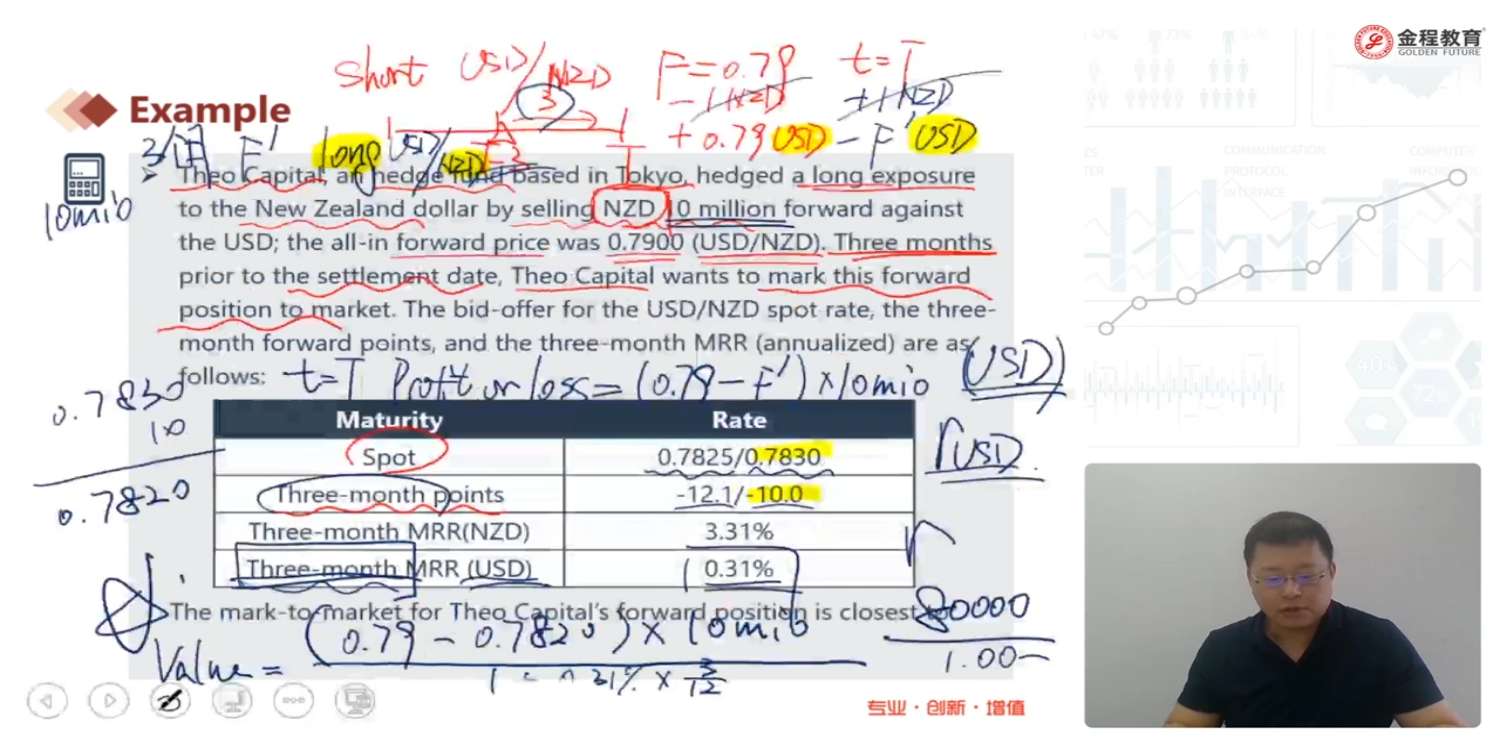 金程教育
GOLDEN FUTURE
short USD/NZD F=0.79 t=T
3 -1NZD +1NZD
Example
3/1月 F' long USD/NZD -3 T +0.79USD -F'USD
Theo Capital, an hedge fund based in Tokyo, hedged a long exposure
10mio to the New Zealand dollar by selling NZD 10 million forward against
the USD; the all-in forward price was 0.7900 (USD/NZD). Three months
prior to the settlement date, Theo Capital wants to mark this forward
position to market. The bid-offer for the USD/NZD spot rate, the three-
month forward points, and the three-month MRR (annualized) are as
follows: t=T Profit or loss=(0.79-F')×10mio (USD)
0.7830
10
0.7820
Maturity Rate
Spot 0.7825/0.7830
rUSD
Three-month points -12.1/-10.0
Three-month MRR(NZD) 3.31%
Three-month MRR (USD) 0.31%
The mark-to-market for Theo Capital's forward position is closest to
Value = (0.79-0.7820)×10mio
1+0.31%×3/12
80000
1.00
专业·创新·增值
COMMUNICATION
PROTOCOL
INTERFACE